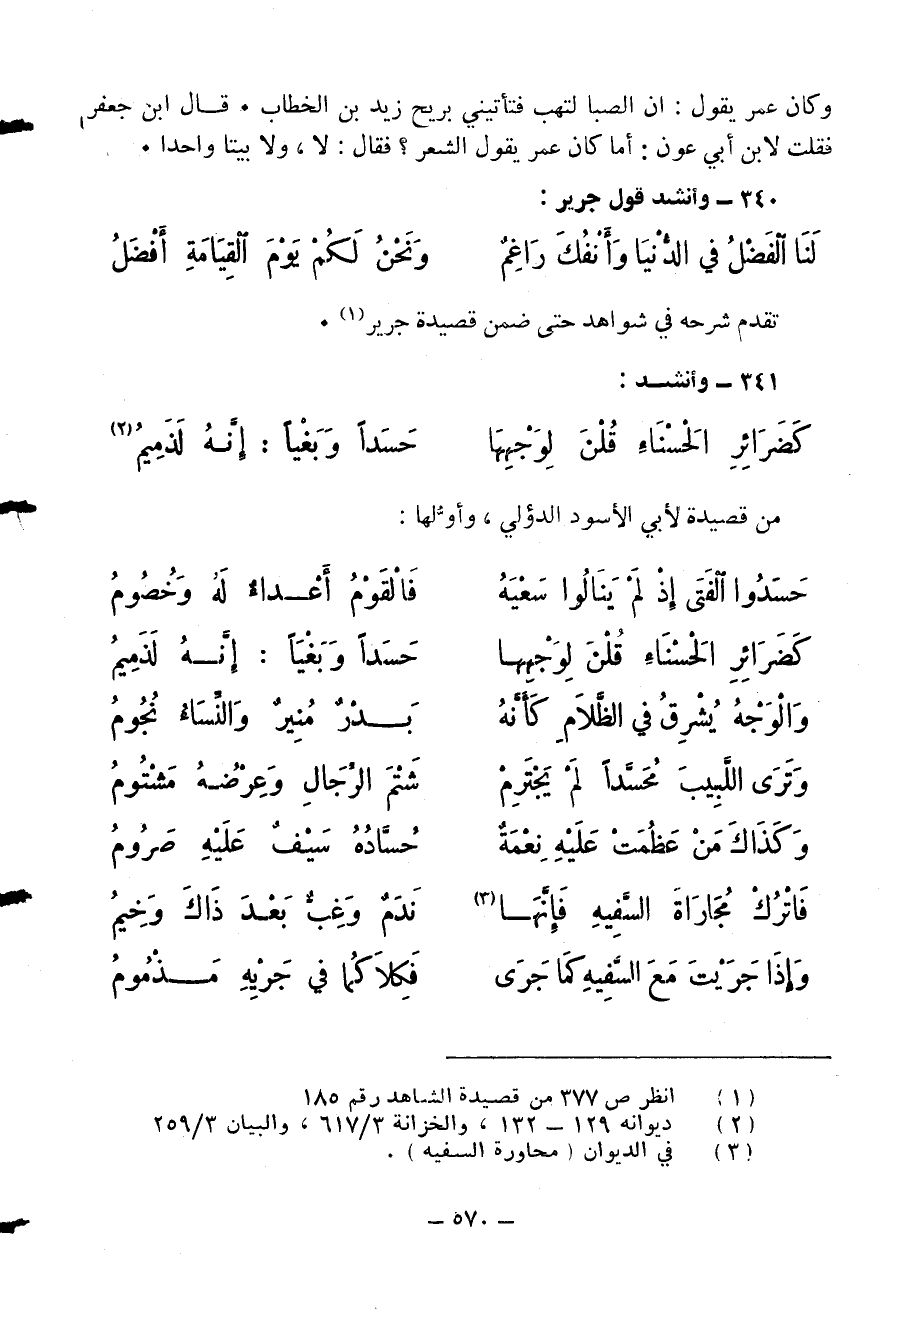 وكان عمر يقول : ان الصبا لتهب فتأتيني بريح زيد بن الخطاب . قـــال ابن جعفر
فقلت لابن أبي عون : أما كان عمر يقول الشعر ؟ فقال : لا ، ولا بيتا واحدا .
٣٤٠ ــ وأنشد قول جرير :
لَنَا الفَضْلُ في الدُّنْيَا وَأَنْفُكَ رَاغِمٌ وَنَحْنُ لَكُمْ يَوْمَ القِيَامَةِ أَفْضَلُ
تقدم شرحه في شواهد حتى ضمن قصيدة جرير(١) .
٣٤١ ــ وأنشـــد :
كَضَرَائِرِ الْحَسْنَاءِ قُلْنَ لِوَجْهِهَا حَسَداً وَبَغْياً : إِنَّـهُ لَذَمِيمُ(٢)
من قصيدة لأبي الأسود الدؤلي ، وأوّلها :
حَسَدُوا الفَتَى إِذْ لَمْ يَنَالُوا سَعْيَهُ فَالْقَوْمُ أَعْـــداءٌ لَهُ وَخُصُومُ
كَضَرَائِرِ الْحَسْنَاءِ قُلْنَ لِوَجْهِهـا حَسَداً وَبَغْيَاً : إِنَّـــهُ لَذَمِيمُ
وَالْوَجْهُ يُشْرِقُ في الظَّلَامِ كَأَنَّهُ بَـــدْرٌ مُنِيرٌ وَالنِّسَاءُ نُجُومُ
وَتَرَى اللَّبِيبَ مُحَسَّداً لَمْ يَجْتَرِمْ شَتْمَ الرِّجَالِ وَعِرْضُـهُ مَشْتُومُ
وَكَذَاكَ مَنْ عَظُمَتْ عَلَيْهِ نِعْمَةٌ حُسَّادُهُ سَيْفٌ عَلَيْهِ صَرُومُ
فَاتْرُكْ مُجَارَاةَ السَّفِيهِ فَإِنَّهَـــا(٣) نَدَمٌ وَغِبٌّ بَعْـدَ ذَاكَ وَخِيمُ
وَإِذَا جَرَيْتَ مَعَ السَّفِيهِ كَمَا جَرَى فَكِلَاكُمَا في جَرْيِهِ مَـــذْمُومُ
(١) انظر ص ٣٧٧ من قصيدة الشاهد رقم ١٨٥
(٢) ديوانه ١٢٩ ــ ١٣٢ ، والخزانة ٦١٧/٣ ، والبيان ٢٥٩/٣
(٣) في الديوان ( محاورة السفيه ) .
ــ ٥٧٠ ــ